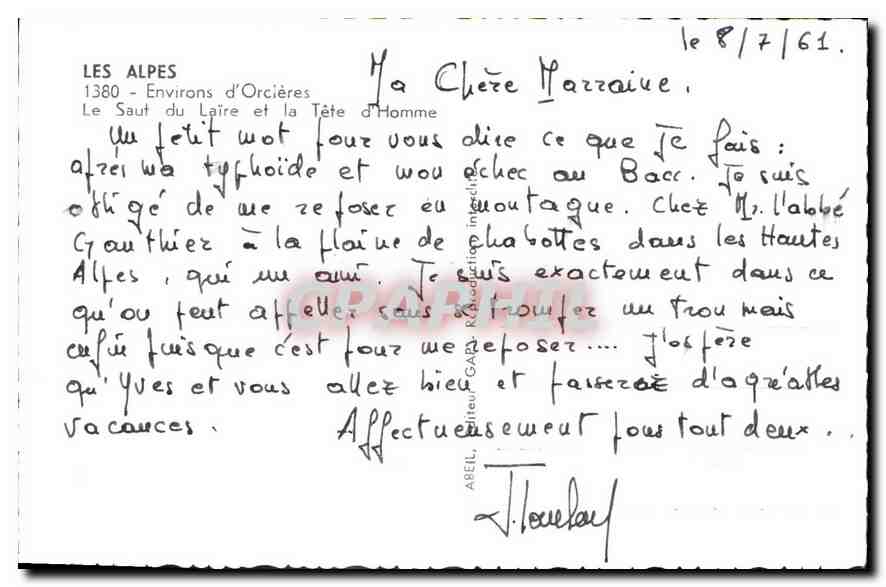 le 8/7/61.
LES ALPES
1380 - Environs d'Orcières
Le Saut du Laïre et la Tête d'Homme
Ma Chère Marraine.
Un petit mot pour vous dire ce que Je fais :
après ma typhoïde et mon échec au Bacc. Je suis
obligé de me reposer en montagne. Chez Mr. l'abbé
Gauthier à la plaine de chabottes dans les Hautes
Alpes, qui un ami. Je suis exactement dans ce
qu'on peut appeller sans se tromper un trou mais
enfin puis que c'est pour me reposer .... J'espère
qu'Yves et vous allez bien et passerez d'agréables
vacances. Affectueusement pous tout deux..
ABEIL, Editeur GAP - Reproduction interdite
CPAPHIL